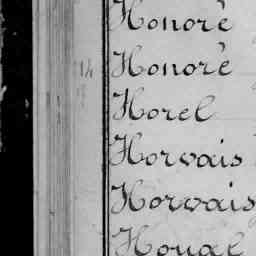 Honorè
14 Honorè
Horel
Horvais
Horvais
Houal